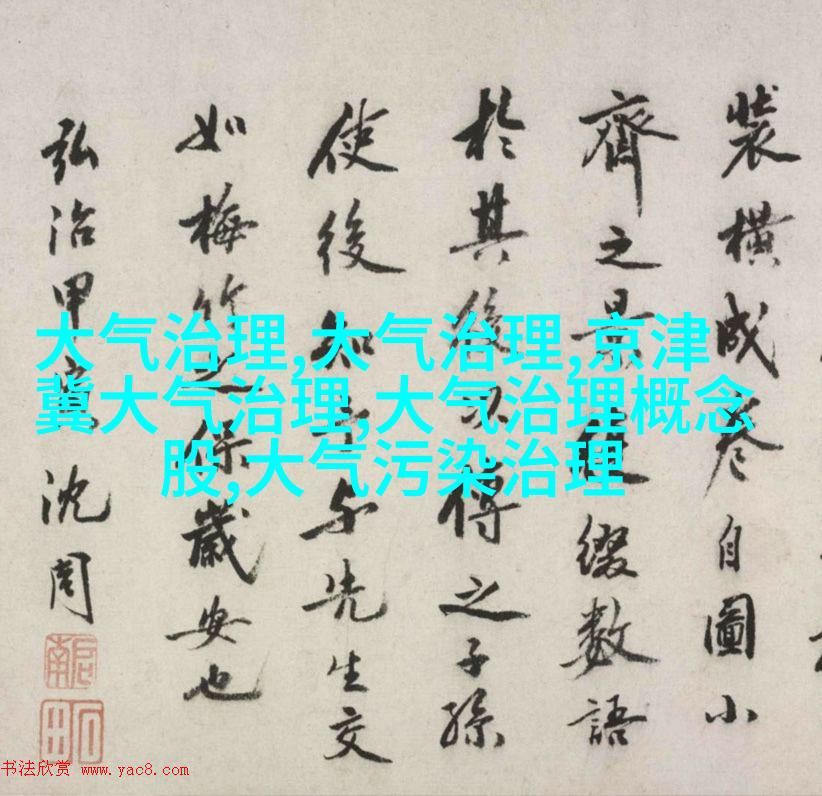 裝橫成卷自圖小
齊之景復綴數語
於其後以傳之子孫
使後知吾与先生交
如梅竹之保歲安也
弘治甲寅沈周
啟南
石田
大气治理,大气治理,京津
冀大气治理,大气治理概念
股,大气污染治理
书法欣赏 www.yac8.com